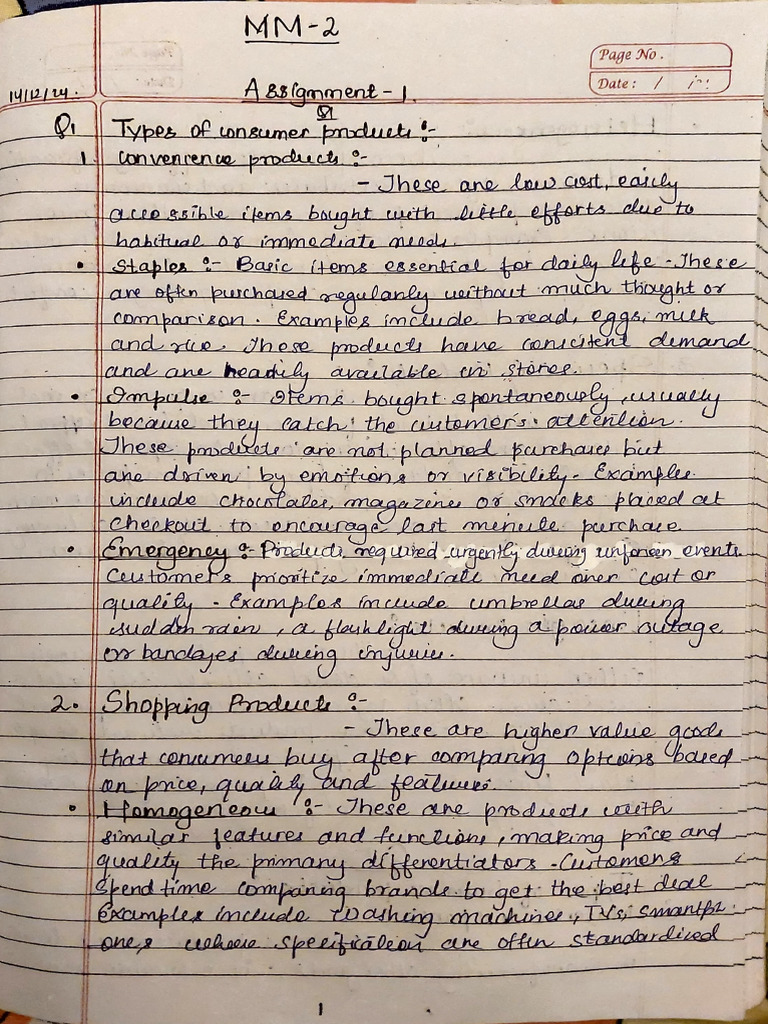 MM-2
Page No.
Date: / /
14/12/24.
Assignment-1.
Q1
Q1 Types of consumer products :-
1. convenience products :-
- These are low cost, easily
accessible items bought with little efforts due to
habitual or immediate needs.
• Staples :- Basic items essential for daily life - These
are often purchased regularly without much thought or
comparison. Examples include bread, eggs, milk
and rice. These products have consistent demand
and are readily available in stores.
• Impulse :- Items bought spontaneously, usually
because they catch the customer's attention.
These products are not planned purchases but
are driven by emotions or visibility. Examples
include chocolates, magazines or snacks placed at
checkout to encourage last minute purchase.
• Emergency :- Products required urgently during unforseen events.
Customers prioritize immediate need over cost or
quality - Examples include umbrellas during
sudden rain, a flashlight during a power outage
or bandages during injuries.
2. Shopping Products :-
- These are higher value goods
that consumers buy after comparing options based
on price, quality and features.
• Homogeneous :- These are products with
similar features and functions, making price and
quality the primary differentiators - Customers
spend time comparing brands to get the best deal
Examples include washing machines, TVs, smartph-
ones where specification are often standardized
1